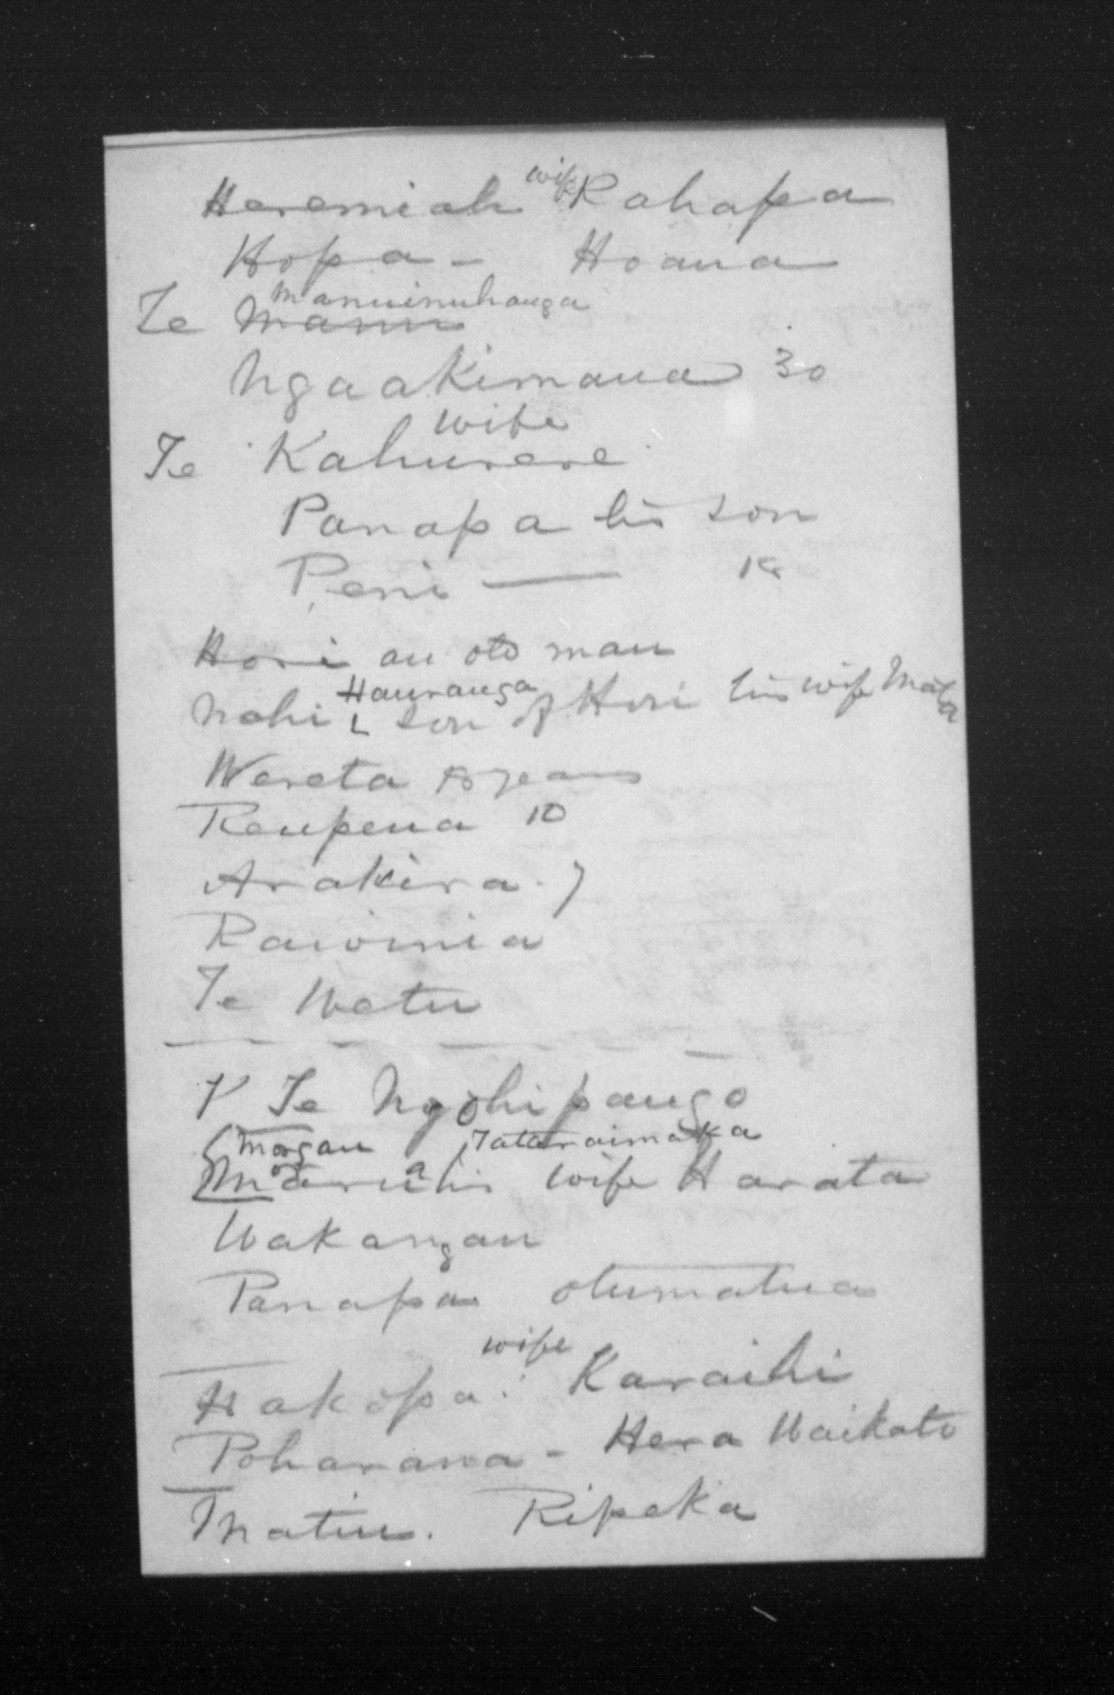 Heremiah wife Rahapa
Hopa - Hoana
Manuinuhanga
Te Manu
Ngaakimana 30
wife
Te Kahurere
Panapa his son
Peni —
Hori an old man
Hauranga
Nohi son of Hori his wife
Wereta years
Reupena 10
Arakira. 7
Rawinia
Te Watu
Te Ngohipango
Morgan Tataraimaka
his wife Harata
Wakangau
Panapa otumatua
wife
Hakopa Karaihi
Poharama - Hera Waikato
Matiu. Ripeka